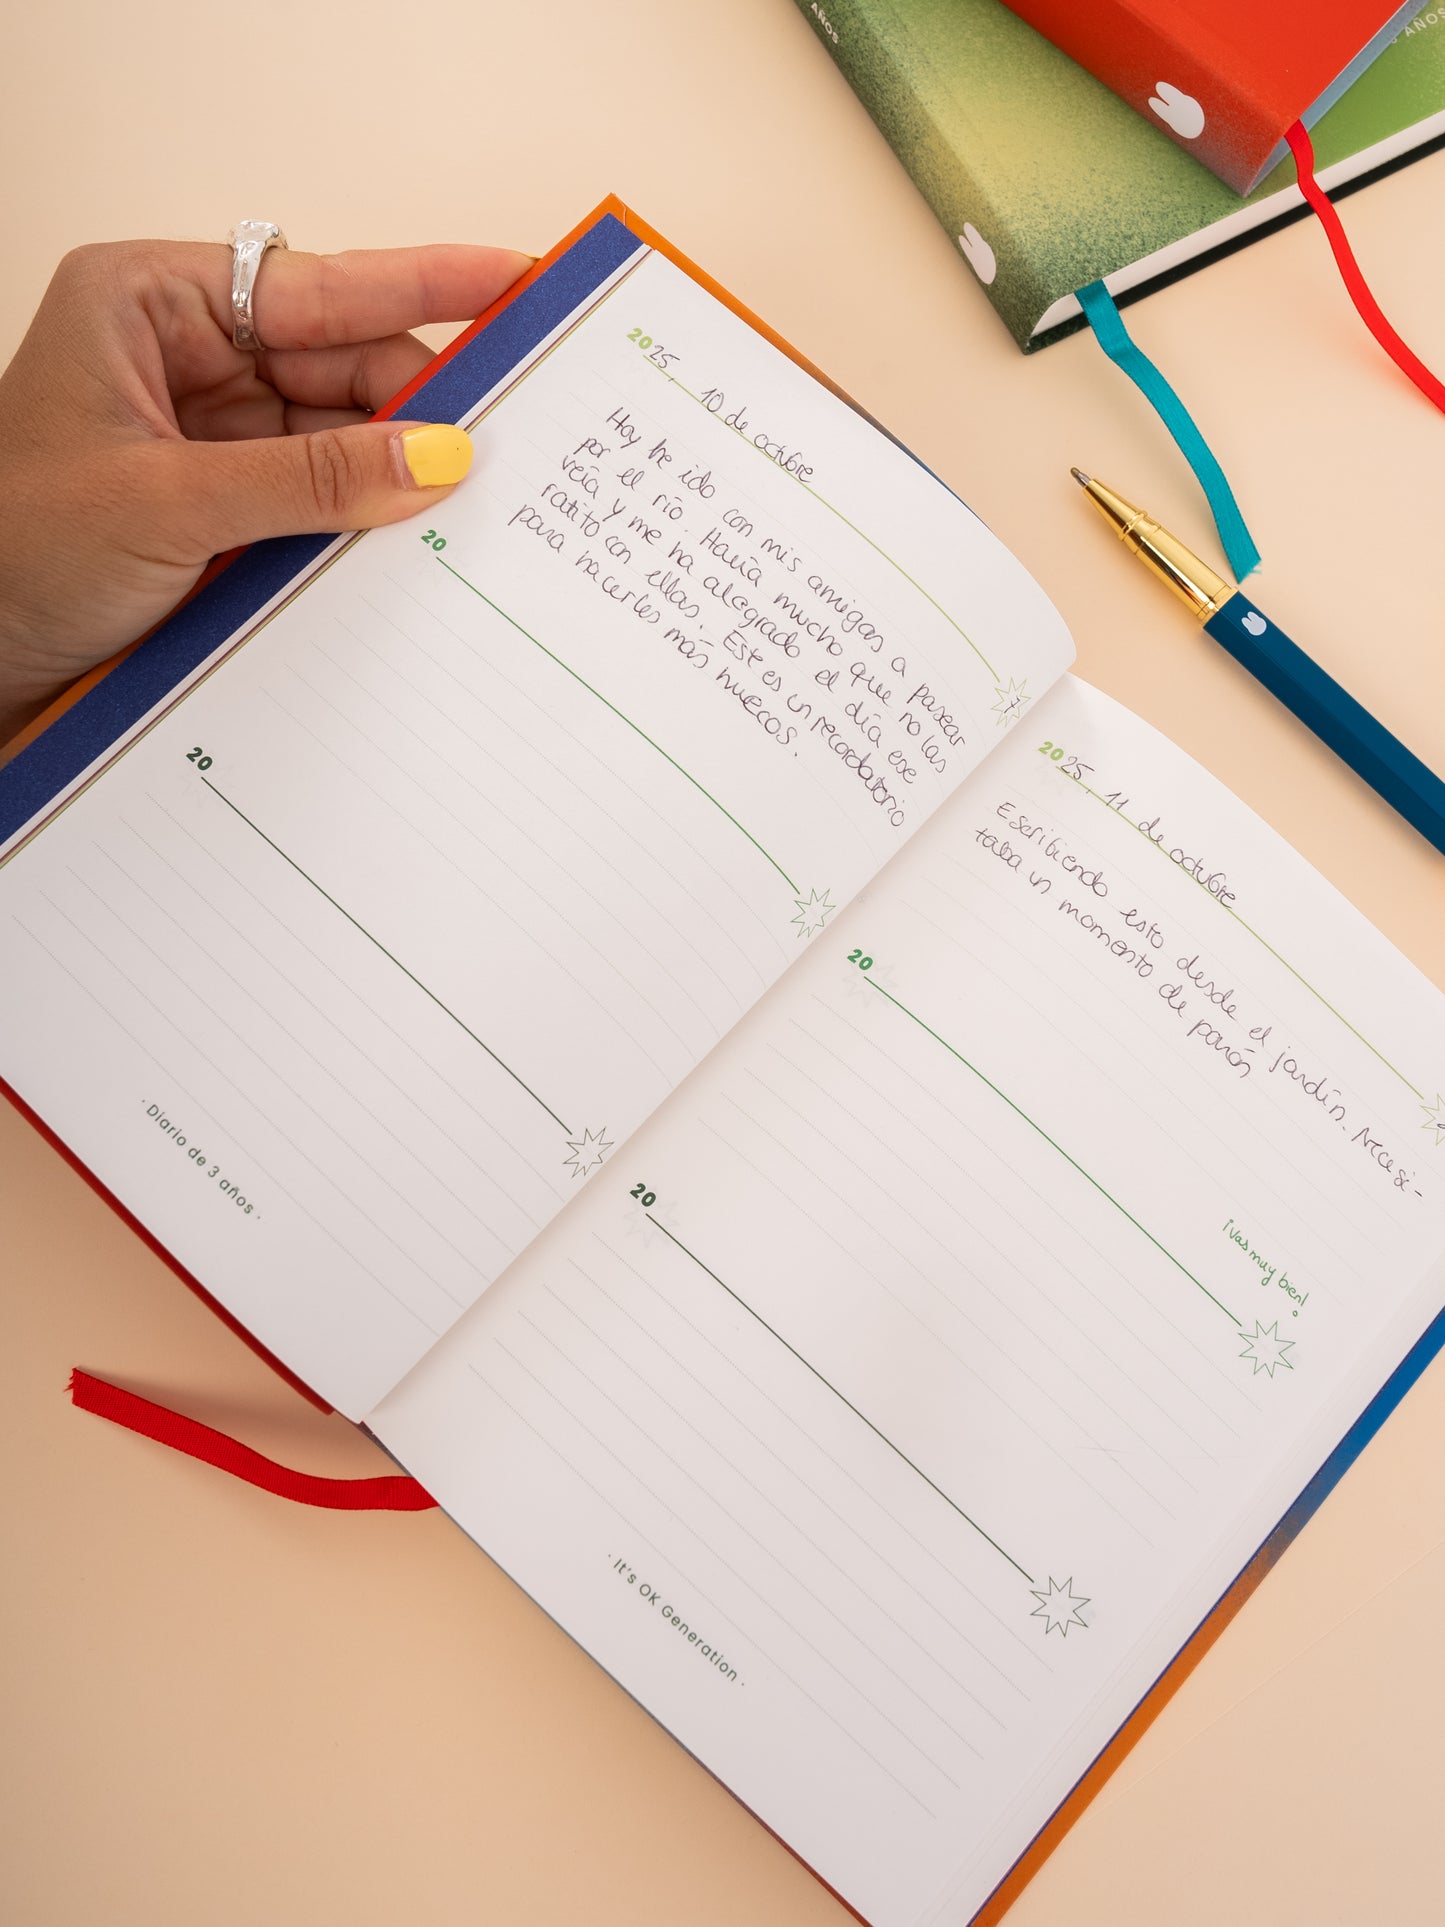 AÑOS
AÑOS
2025, 10 de octubre
Hoy he ido con mis amigas a pasear
por el río. Hacía mucho que no las
veía y me ha alegrado el día ese
ratito con ellas. Este es un recordatorio
para hacerles más huecos.
7
20
20
· Diario de 3 años ·
2025, 11 de octubre
Escribiendo esto desde el jardín. Necesi-
taba un momento de parón
20
¡Vas muy bien!
20
· It's OK Generation ·